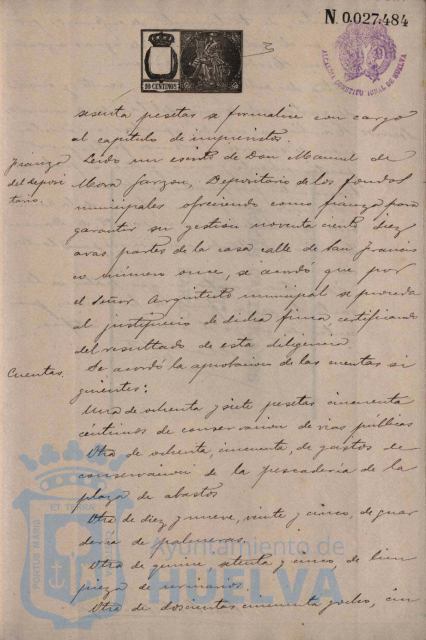 N. 0.027.484
10 CENTIMOS
ALCALDIA CONSTITUCIONAL DE HUELVA
sesenta pesetas se formalice con cargo
al capitulo de imprevistos.
Fianza
del Deposi
tario.
Leido un escrito de Don Manuel de
Mora Garzon, Depositario de los fondos
municipales ofreciendo como fianza para
garantir su gestion noventa ciento diez
avas partes de la casa calle de San Francis
co número once, se acordó que por
el Señor Arquitecto municipal se proceda
al justiprecio de dicha finca certificando
del resultado de esta diligencia
Cuentas.
Se acordó la aprobacion de las cuentas si
guientes:
Una de ochenta y siete pesetas cincuenta
céntimos de conservacion de vias públicas
Otra de ochenta, cincuenta, de gastos de
conservacion de la pescadería de la
plaza de abastos
Otra de diez y nueve, veinte y cinco, de guar
dería de palmeras.
Otra de quince, setenta y cinco, de lim
pieza de urinarios.
Otra de doscientas cincuenta y ocho, cin
PORTUS MARIS ET TERRÆ
Ayuntamiento de
HUELVA